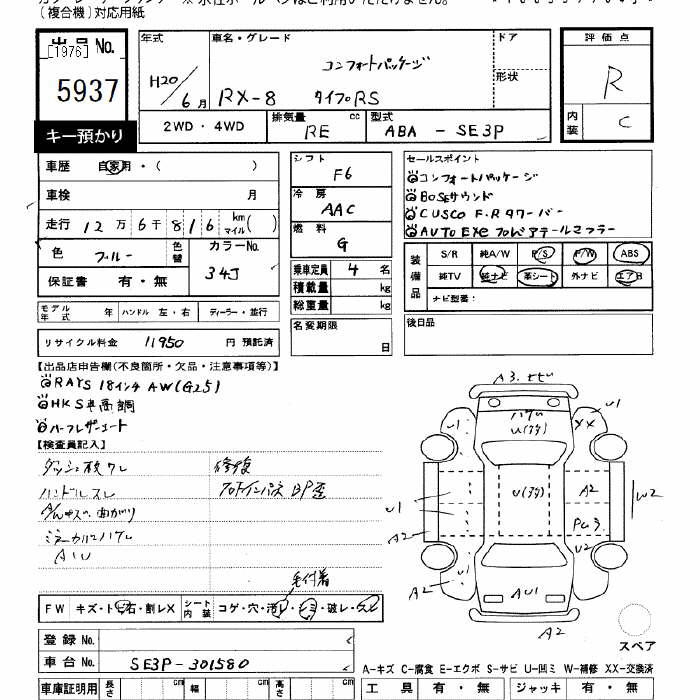 (複合機)対応用紙
出品No.
[1976]
5937
キー預かり
年式
H20/6月
車名・グレード
コンフォートパッケージ
RX-8 タイプRS
ドア
形状
2WD・4WD
排気量 cc
RE
型式
ABA - SE3P
評価点
R
内装
C
車歴 自家用・( )
車検 月
走行 12万6千816 km マイル( )
色 ブルー
色替
カラーNo.
34J
保証書 有・無
シフト
F6
冷房
AAC
燃料
G
乗車定員 4 名
積載量 kg
総重量 kg
セールスポイント
コンフォートパッケージ
BOSEサウンド
CUSCO F.Rタワーバー
AUTO EXE フロント リアテールマフラー
装備品
S/R 純A/W P/S P/W ABS
純TV 純ナビ 革シート 外ナビ エアB
ナビ型番:
モデル年式 年 ハンドル 左・右 ディーラー・並行
名変期限 日
後日品
リサイクル料金 11950 円 預託済
【出品店申告欄(不良箇所・欠品・注意事項等)】
RAYS 18インチAW(G25)
HKS車高調
ハーフレザーシート
【検査員記入】
ダッシュ板ワレ
ハンドルスレ
ミラーカバーハゲ
AU
修復
フロントインパネ
毛付着
FW キズ・トビ石・割レX
シート内装 コゲ・穴・汚レ・シミ・破レ・スレ
登録No.
車台No. SE3P-301580
車庫証明用 長さ cm 幅 cm 高さ cm
A3.トビ
ハゲU
U(タタ)
U1
XX
U1
U(タタ)
A2
U1
W2
A2
Pa3.
U1
A2
AU1
A2
A2
スペア
A-キズ C-腐食 E-エクボ S-サビ U-凹ミ W-補修 XX-交換済
工具 有・無 ジャッキ 有・無